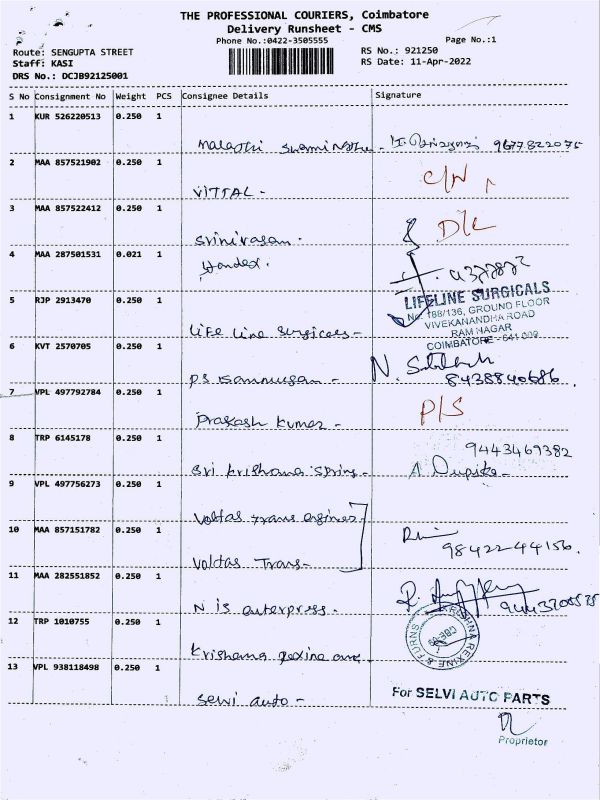 THE PROFESSIONAL COURIERS, Coimbatore
Delivery Runsheet - CMS
Phone No.:0422-3505555
Page No.:1
Route: SENGUPTA STREET
RS No.: 921250
Staff: KASI
RS Date: 11-Apr-2022
DRS No.: DCJB92125001
S No Consignment No Weight PCS Consignee Details Signature
1 KUR 526220513 0.250 1
Malathi Swaminathe - 9677822075
2 MAA 857521902 0.250 1
VITTAL - C/N
3 MAA 857522412 0.250 1
Srinivasan - D/L
4 MAA 287501531 0.021 1
Yandex.
5 RJP 2913470 0.250 1
Life Line Surgicals -
LIFELINE SURGICALS
No. 188/136, GROUND FLOOR
VIVEKANANDHA ROAD
RAM NAGAR
COIMBATORE - 641 009
6 KVT 2570705 0.250 1
PS - N. 8438840686.
7 VPL 497792784 0.250 1
Prakash Kumar - P/S
8 TRP 6145178 0.250 1
9443469382
Sri Krishana Spring -
9 VPL 497756273 0.250 1
Voltas Trans
10 MAA 857151782 0.250 1
98422-44156.
Voltas Trans-
11 MAA 282551852 0.250 1
N is enterpress -
12 TRP 1010755 0.250 1
KRISHNA REXINE & FURNS
CBE-9
Krishana Rexine
13 VPL 938118498 0.250 1
Selvi auto -
For SELVI AUTO PARTS
Proprietor